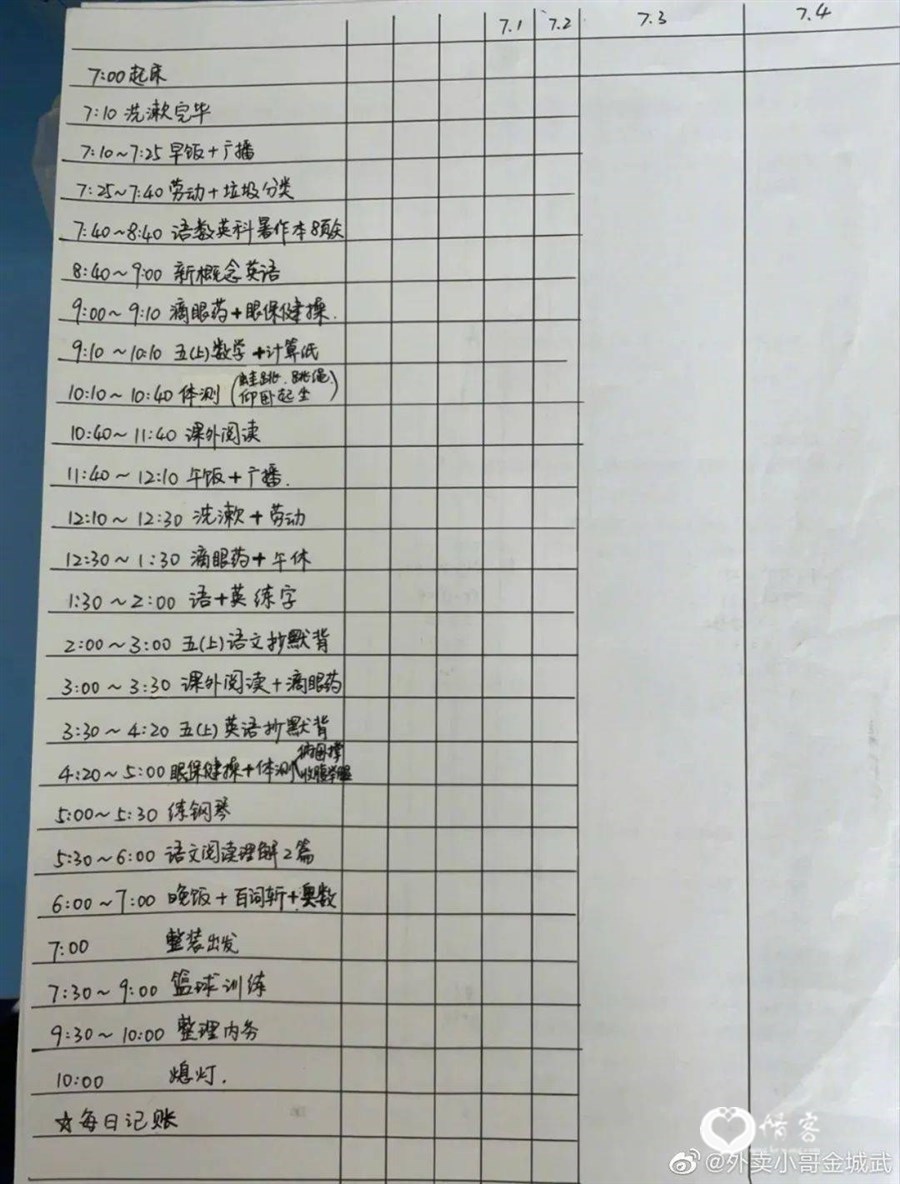 7.1 7.2 7.3 7.4
7:00 起床
7:10 洗漱完毕
7:10~7:25 早饭+广播
7:25~7:40 劳动+垃圾分类
7:40~8:40 语数英科暑作本8页/天
8:40~9:00 新概念英语
9:00~9:10 滴眼药+眼保健操.
9:10~10:10 五(上)数学+计算纸
10:10~10:40 体测(蛙跳、跳绳、
仰卧起坐)
10:40~11:40 课外阅读
11:40~12:10 午饭+广播.
12:10~12:30 洗漱+劳动
12:30~1:30 滴眼药+午休
1:30~2:00 语+英练字
2:00~3:00 五(上)语文抄默背
3:00~3:30 课外阅读+滴眼药
3:30~4:20 五(上)英语抄默背
4:20~5:00 眼保健操+体测(俯卧撑
收腹举腿
5:00~5:30 练钢琴
5:30~6:00 语文阅读理解2篇
6:00~7:00 晚饭+百词斩+奥数
7:00 整装出发
7:30~9:00 篮球训练
9:30~10:00 整理内务
10:00 熄灯.
☆每日记账
@外卖小哥金城武